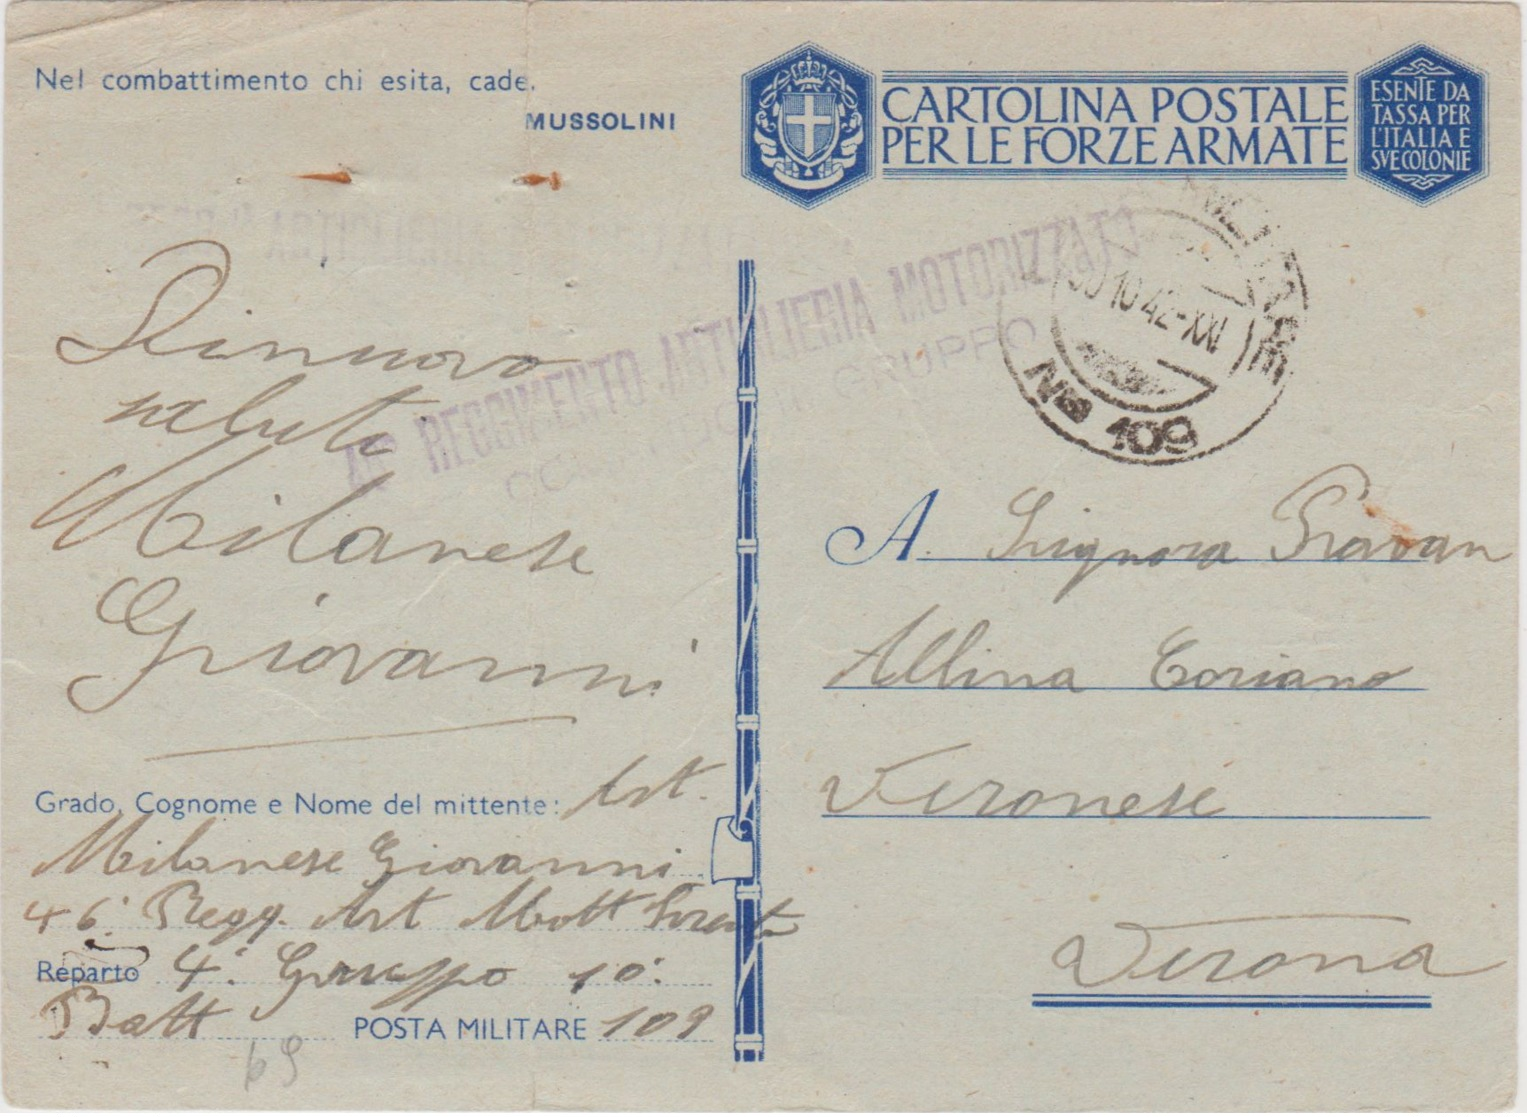 Nel combattimento chi esita, cade.
MUSSOLINI
CARTOLINA POSTALE
PER LE FORZE ARMATE
ESENTE DA
TASSA PER
L'ITALIA E
SVE COLONIE
Rinnovo
saluti
Milanese
Giovanni
46° REGGIMENTO ARTIGLIERIA MOTORIZZATO
GRUPPO
MILITARE
30 10 42-XXI
No 109
A. Signora Giavan
Albina Coriano
Veronese
Verona
Grado, Cognome e Nome del mittente: Art.
Milanese Giovanni
46° Regg. Art Mott Trento
Reparto 4° Gruppo 10°
Batt POSTA MILITARE 109
69